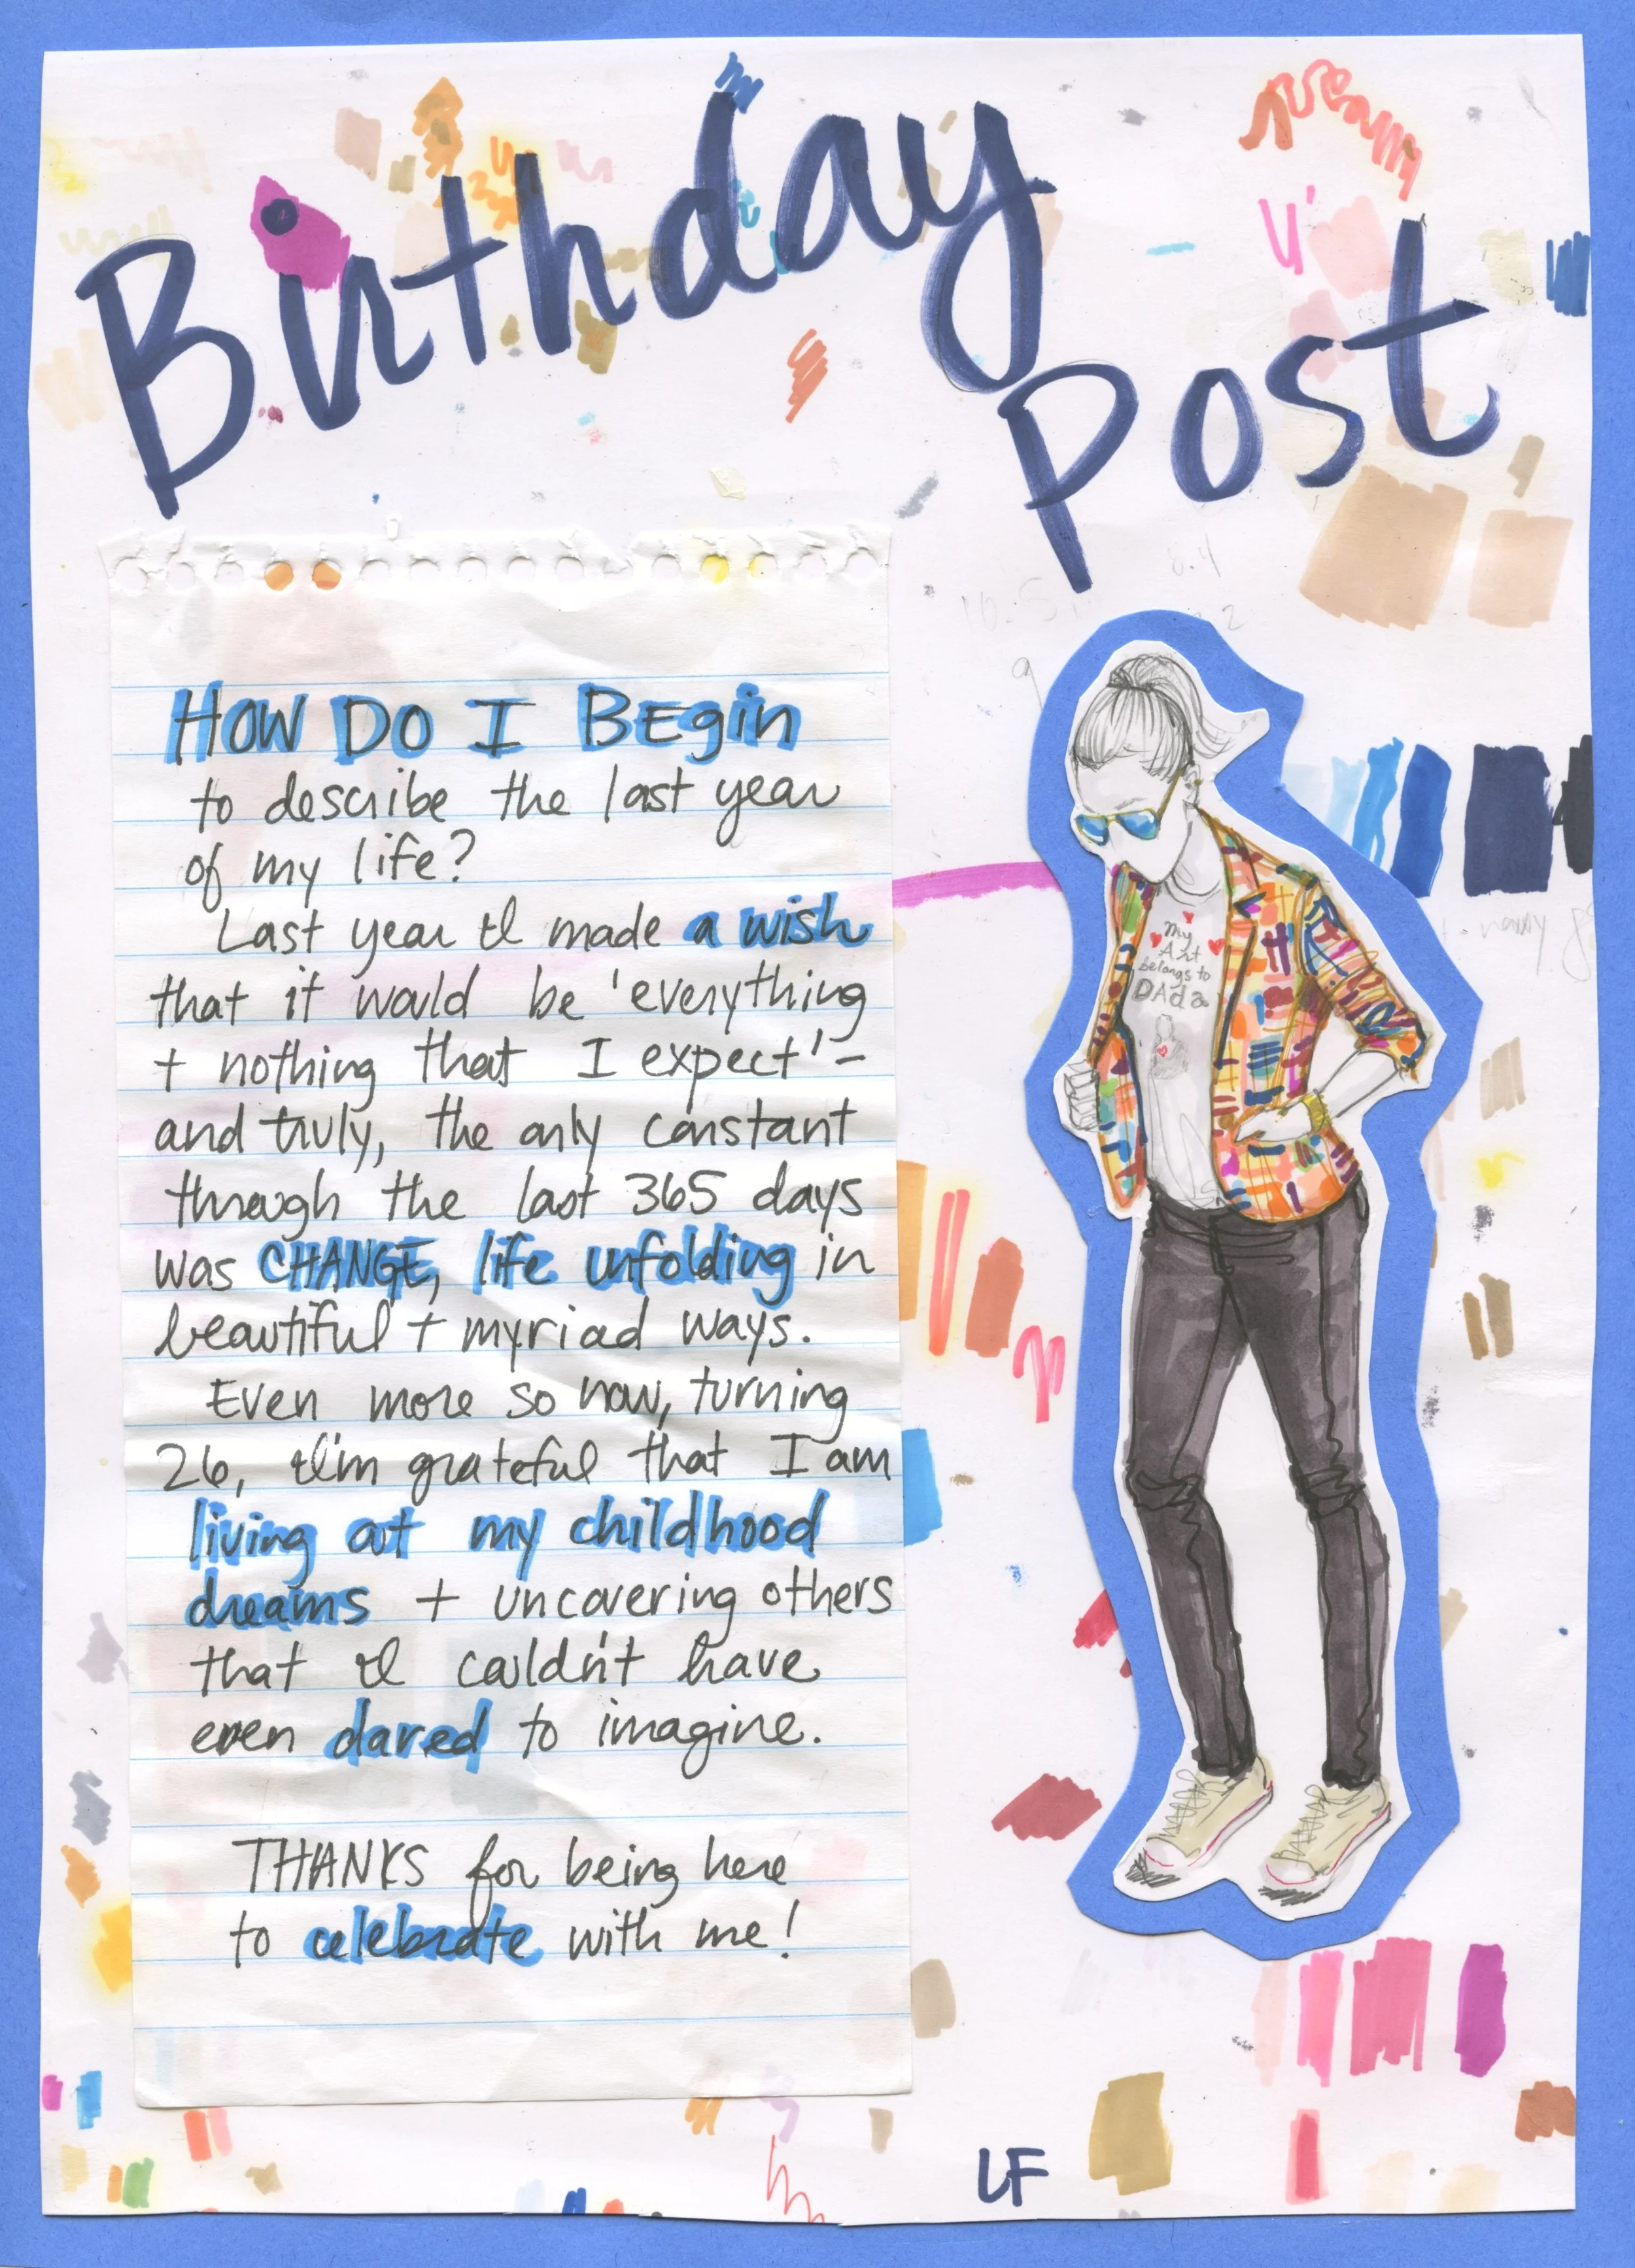 Birthday
Post
HOW DO I BEgin
to describe the last year
of my life?
Last year I made a wish
that it would be 'everything
+ nothing that I expect' -
and truly, the only constant
through the last 365 days
was CHANGE, life unfolding in
beautiful + myriad ways.
Even more so now, turning
26, I'm grateful that I am
living out my childhood
dreams + uncovering others
that I couldn't have
even dared to imagine.
THANKS for being here
to celebrate with me!
My
Art
belongs to
DAda
LF